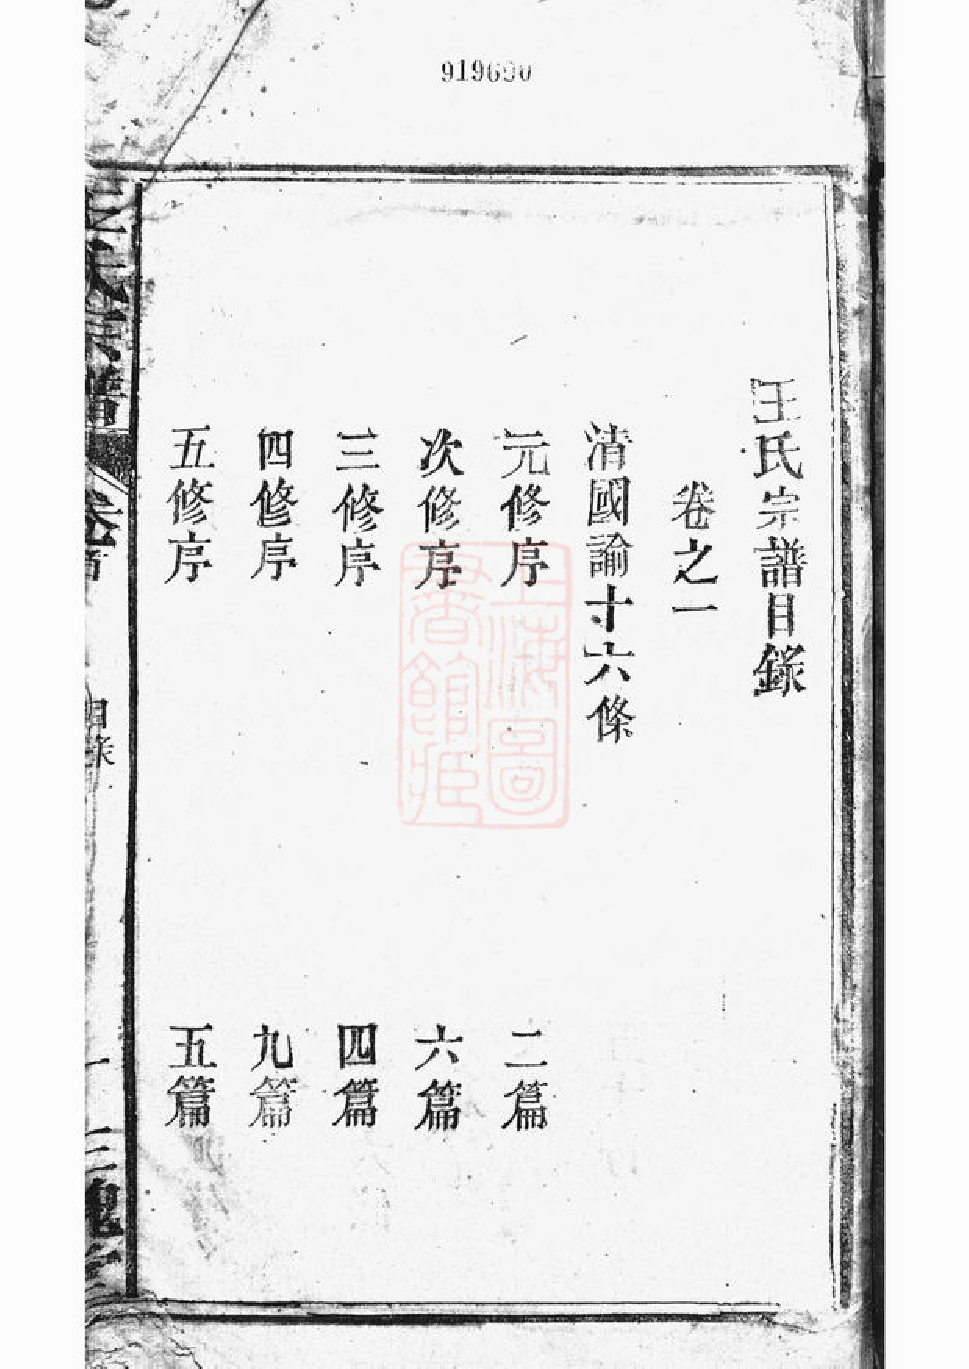 919690
王氏宗譜目錄
卷之一
清國諭十六條
元修序 二篇
次修序 六篇
三修序 四篇
四修序 九篇
五修序 五篇
王氏宗譜 卷首 目錄 一 三槐堂
上海圖
書館藏